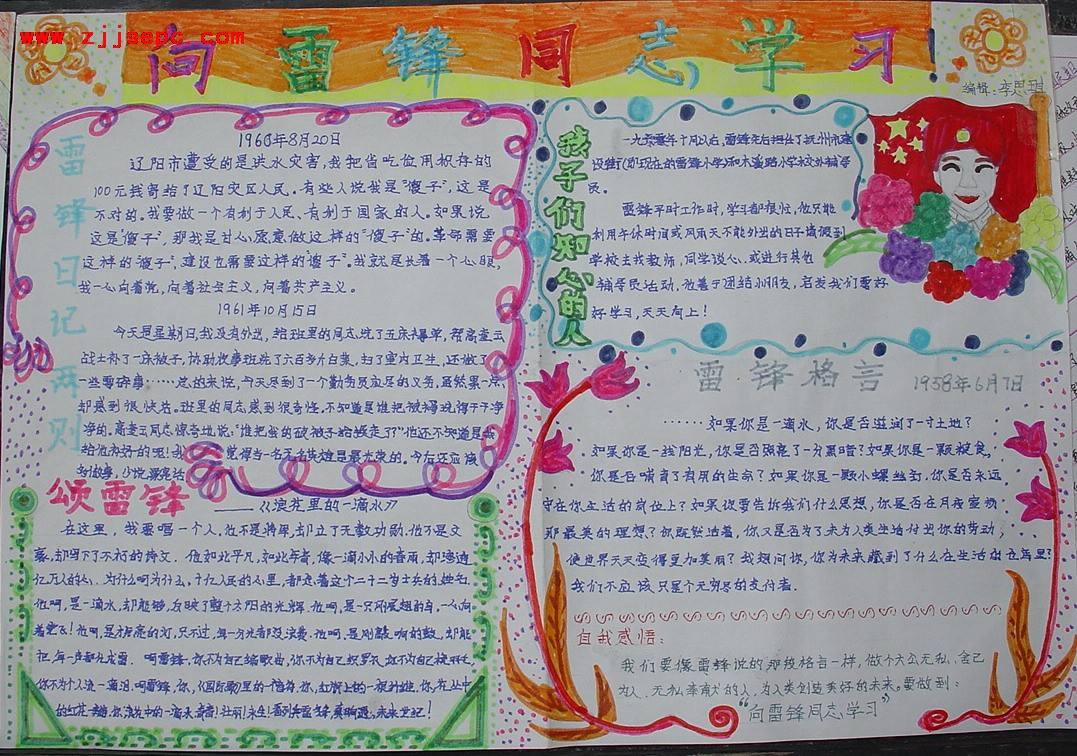 www.zjjsepc.com
向雷锋同志学习!
编辑：李思琪
雷锋日记两则
1960年8月20日
辽阳市遭受的是洪水灾害，我把省吃俭用积存的
100元钱寄给了辽阳灾区人民。有些人说我是“傻子”，这是
不对的。我要做一个有利于人民、有利于国家的人。如果说
这是“傻子”，那我是甘心愿意做这样的“傻子”的。革命需要
这样的“傻子”，建设也需要这样的“傻子”。我就是长着一个心眼，
我一心向着党，向着社会主义，向着共产主义。
1961年10月15日
今天是星期日，我没有外出，给班里的同志洗了五床褥单，帮高奎云
战士补了一床被子，协助炊事班洗了六百多斤白菜，扫了室内卫生，还做了
一些零碎事……总的来说，今天尽到了一个勤务员应尽的义务，虽然累一点，
却感到很快活。班里的同志感到很奇怪，不知道是谁把被褥洗得干干净
净的。高奎云同志惊奇地说：“谁把我的破被子给换走了？”他还不知道是我
给他补好的呢！我觉得当一名无名英雄是最光荣的。今后还应该
多做事，少说漂亮话
孩子们知心的人
一九六零年十月以后，雷锋先后担任了抚州市建
设街(即现在的雷锋小学)和本溪路小学校外辅导
员。
雷锋平时工作时，学习都很忙，他只能
利用午休时间或风雨天不能外出的日子请假到
学校去找教师，同学谈心，或进行其他
辅导员活动，他善于团结小朋友，启发我们要好
好学习，天天向上！
雷锋格言 1958年6月7日
……如果你是一滴水，你是否滋润了一寸土地？
如果你是一线阳光，你是否照亮了一分黑暗？如果你是一颗粮食，
你是否哺育了有用的生命？如果你是一颗小螺丝钉，你是否永远
守在你生活的岗位上？如果你要告诉我们什么思想，你是否在日夜宣扬
那最美的理想？你既然活着，你又是否为了未来人类生活付出你的劳动，
使世界天天变得更加美丽？我想问你，你为未来藏到了什么在生活的仓库里？
我们不应该只是个无穷尽的支付者。
颂雷锋
——《浪花里的一滴水》
在这里，我要唱一个人，他不是将军，却立了无数功勋，他不是文
豪，却写下了不朽的诗文。他如此平凡，如此年青，像一滴小小的春雨，却渗透
亿万人的心。为什么啊为什么，十亿人民的心里，都念着这个二十二岁士兵的姓名
他啊，是一滴水，却能够，反映了整个太阳的光辉。他啊，是一只刚展翅的鸟，一心向
着党飞！他啊，是才点亮的灯，只不过，每一分光都没浪费。他啊，是刚敲响的鼓，却能
把每一声都化成雷。啊雷锋，你不为自己编歌曲，你不为自己织罗衣，
你不为个人流一滴泪。啊雷锋，你，《国际歌》里的一个音符，你，红旗上的一根纤维，你，花丛中
自我感悟：
我们要像雷锋说的那段格言一样，做个大公无私、舍己
为人、无私奉献的人，为人类创造美好的未来，要做到：
“向雷锋同志学习”